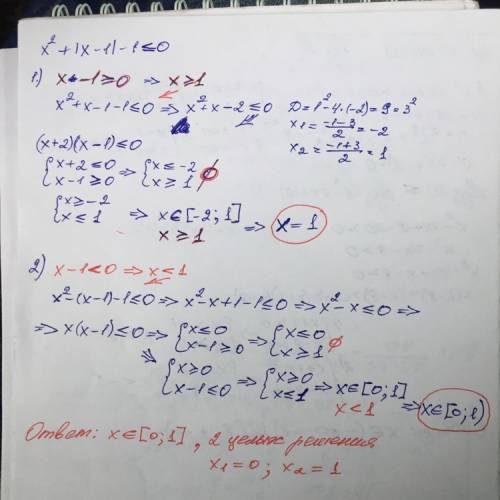 x² + |x-1| - 1 ≤ 0
1) x-1 ≥ 0 ⇒ x ≥ 1
x² + x - 1 - 1 ≤ 0 ⇒ x² + x - 2 ≤ 0 D = 1² - 4·(-2) = 9 = 3²
x₁ = (-1-3)/2 = -2
x₂ = (-1+3)/2 = 1
(x+2)(x-1) ≤ 0
{x+2 ≤ 0 ⇒ {x ≤ -2
{x-1 ≥ 0 {x ≥ 1 ∅
{x ≥ -2
{x ≤ 1 ⇒ x ∈ [-2; 1] ⇒ x = 1
x ≥ 1
2) x-1 < 0 ⇒ x < 1
x² - (x-1) - 1 ≤ 0 ⇒ x² - x + 1 - 1 ≤ 0 ⇒ x² - x ≤ 0 ⇒
⇒ x(x-1) ≤ 0 ⇒ {x ≤ 0 ⇒ {x ≤ 0
{x-1 ≥ 0 {x ≥ 1 ∅
⇒ {x ≥ 0 ⇒ {x ≥ 0 ⇒ x ∈ [0; 1]
{x-1 ≤ 0 {x ≤ 1 x < 1 ⇒ x ∈ [0; 1)
Ответ: x ∈ [0; 1], 2 целых решения
x₁ = 0; x₂ = 1